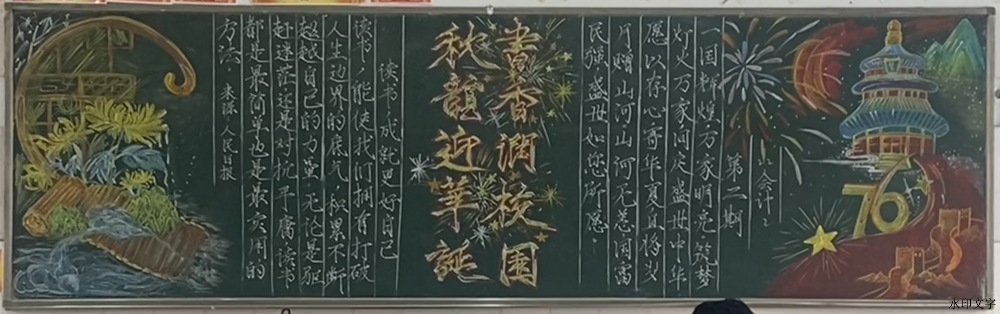 六会计二
第二期
一国辉煌万家明亮,筑梦
灯火万家间定盛世中华
愿以存心寄华夏且将岁
月赠山河山河无恙国富
民强盛世如您所愿。
76
書香润校園
秋韻迎華誕
读书成就更好自己
读书,能使我们拥有打破
人生边界的底气,积累不断
超越自己的力量,无论是驱
赶迷茫还是对抗平庸读书
都是最简单也是最实用的
方法. 来源:人民日报
水印文字